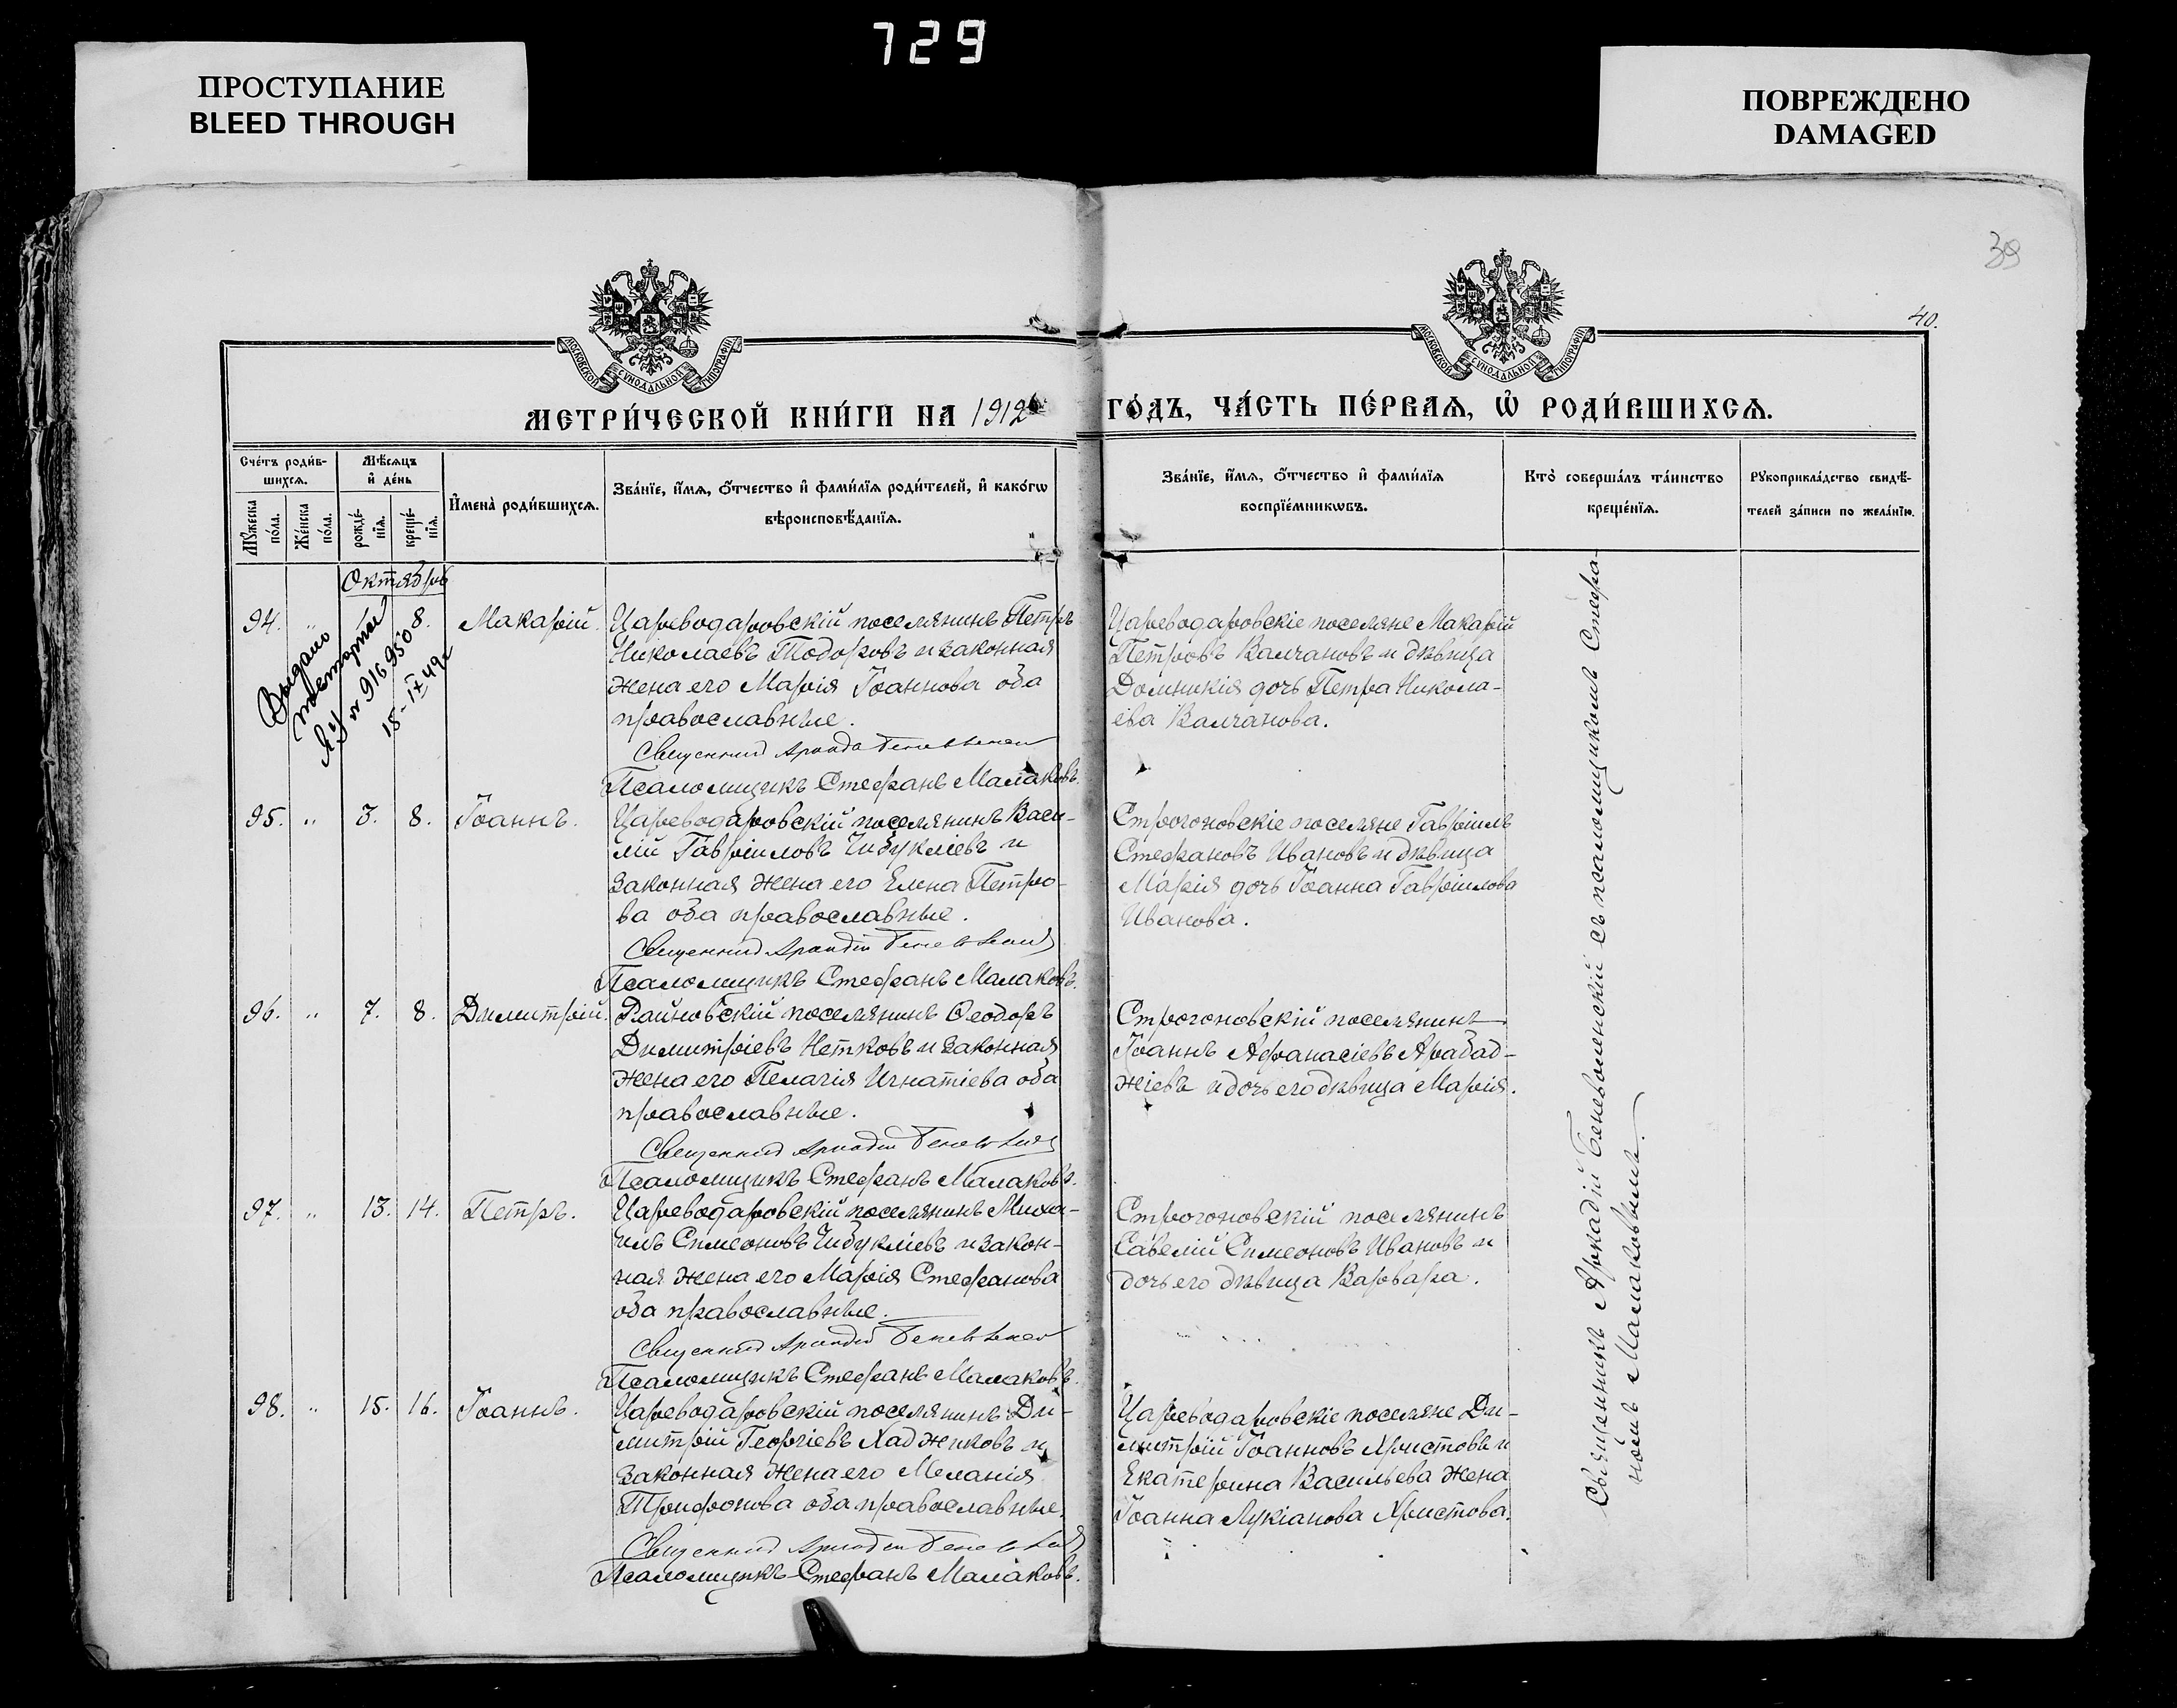 729
ПРОСТУПАНИЕ
BLEED THROUGH
ПОВРЕЖДЕНО
DAMAGED
39
40.
МОСКОВСКОЙ СѴНОДАЛЬНОЙ ТИПОГРАФІИ
МОСКОВСКОЙ СѴНОДАЛЬНОЙ ТИПОГРАФІИ
МЕТРИ́ЧЕСКОЙ КНИ́ГИ НА 1912 ГО́ДЪ, ЧА́СТЬ ПЕ́РВАѦ, Ѡ҆ РОДИ́ВШИХСѦ.
Сче́тъ роди́в-
шихсѧ.
Мѣ́сѧцъ
и҆ де́нь
Мꙋ́жеска
по́ла.
Же́нска
по́ла.
рожде́-
нїѧ.
креще́-
нїѧ.
И҆мена̀ роди́вшихсѧ.
Зва́нїе, и҆́мѧ, ѻ҆́тчество и҆ фами́лїѧ роди́телей, и҆ како́гѡ
вѣроисповѣ́данїѧ.
Зва́нїе, и҆́мѧ, ѻ҆́тчество и҆ фами́лїѧ
воспрїе́мникѡвъ.
Кто̀ соверша́лъ та́инство
креще́нїѧ.
Рꙋкоприкла́дство свидѣ́-
телей за́писи по жела́нїю.
Октябрь
94. " 8. Макарій.
Выдано
повторное
ЯУ № 9169508
18-IX 49г
Цареводаровскій поселянинъ Петръ
Николаевъ Тодоровъ и законная
жена его Марія Іоаннова оба
православные.
Священникъ Аркадій
Псаломщикъ Стефанъ Малаковъ.
Цареводаровскіе поселяне Макарій
Петровъ Валчановъ и дѣвица
Домникія дочь Петра Никола-
ева Валчанова.
95. " 3. 8. Іоаннъ.
Цареводаровскій поселянинъ Васи-
лій Гавріиловъ Чибукліевъ и
законная жена его Елена Петро-
ва оба православные.
Священникъ Аркадій
Псаломщикъ Стефанъ Малаковъ.
Строгоновскіе поселяне Гавріилъ
Стефановъ Ивановъ и дѣвица
Марія дочь Іоанна Гавріилова
Иванова.
96. " 7. 8. Димитрій.
Райновскій поселянинъ Ѳеодоръ
Димитріевъ Нетковъ и законная
жена его Пелагія Игнатіева оба
православные.
Священникъ Аркадій
Псаломщикъ Стефанъ Малаковъ.
Строгоновскій поселянинъ
Іоаннъ Афанасіевъ Арабад-
жіевъ и дочь его дѣвица Марія.
97. " 13. 14. Петръ.
Цареводаровскій поселянинъ Миха-
илъ Симеоновъ Чибукліевъ и закон-
ная жена его Марія Стефанова
оба православные.
Священникъ Аркадій
Псаломщикъ Стефанъ Малаковъ.
Строгоновскій поселянинъ
Савелій Симеоновъ Ивановъ и
дочь его дѣвица Варвара.
98. " 15. 16. Іоаннъ.
Цареводаровскій поселянинъ Ди-
митрій Георгіевъ Хаджиковъ и
законная жена его Меланія
Трифонова оба православные.
Священникъ Аркадій
Псаломщикъ Стефанъ Малаковъ.
Цареводаровскіе поселяне Ди-
митрій Іоанновъ Христовъ и
Екатерина Васильева жена
Іоанна Лукіанова Христова.
Священникъ Аркадій Беневоленскій съ псаломщикомъ Стефа-
номъ Малаковымъ.